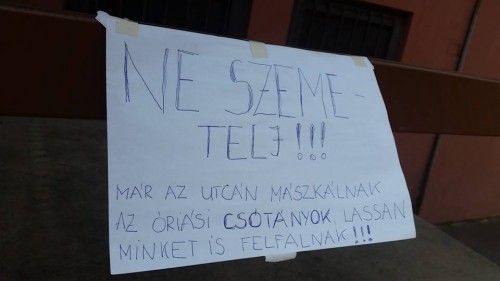 NE SZEME-
TELJ!!!
MÁR AZ UTCÁN MÁSZKÁLNAK
AZ ÓRIÁSI CSÓTÁNYOK, LASSAN
MINKET IS FELFALNAK!!!